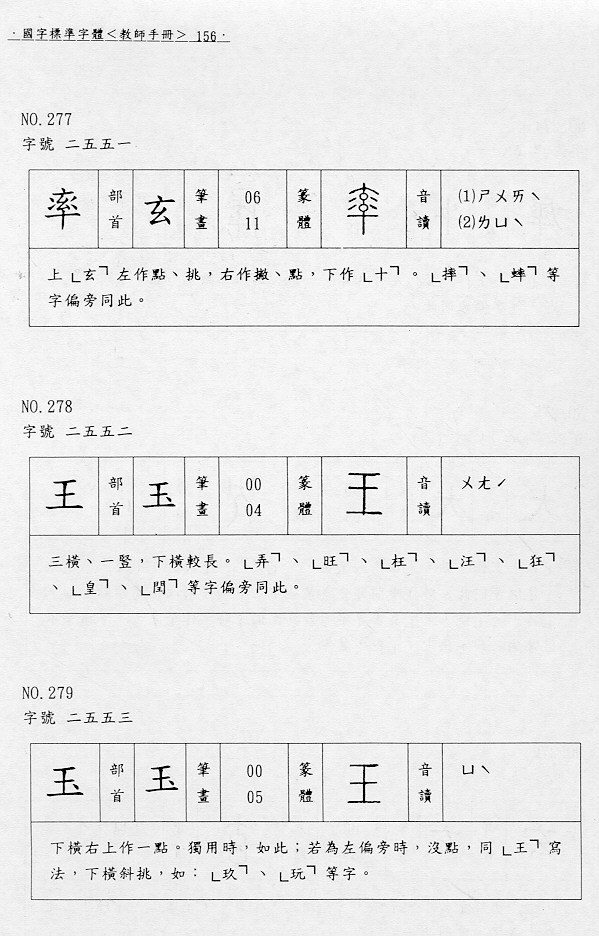 ·國字標準字體<教師手冊> 156·
NO.277
字號 二五五一
率 部首 玄 筆畫 06 11 篆體 率 音讀 (1)ㄕㄨㄞˋ (2)ㄌㄩˋ
上「玄」左作點、挑,右作撇、點,下作「十」。「摔」、「蟀」等
字偏旁同此。
NO.278
字號 二五五二
王 部首 玉 筆畫 00 04 篆體 王 音讀 ㄨㄤˊ
三橫、一豎,下橫較長。「弄」、「旺」、「枉」、「汪」、「狂」
、「皇」、「閏」等字偏旁同此。
NO.279
字號 二五五三
玉 部首 玉 筆畫 00 05 篆體 王 音讀 ㄩˋ
下橫右上作一點。獨用時,如此;若為左偏旁時,沒點,同「王」寫
法,下橫斜挑,如:「玖」、「玩」等字。